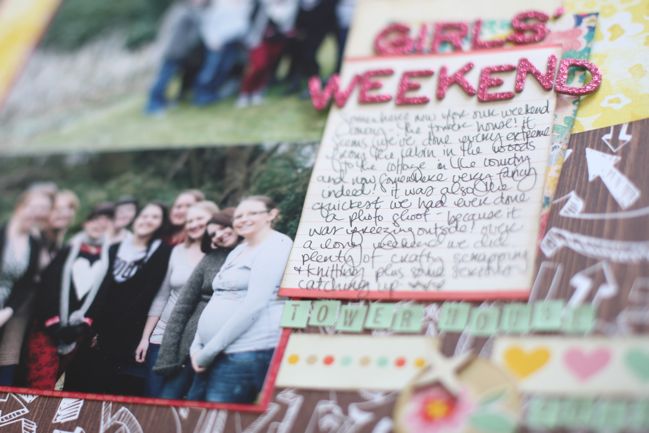 GIRLS'
WEEKEND
somewhere new for our weekend
the tower house! it
seems we've done every extreme
from the cabin in the woods
to the cottage in the country
and now somewhere very fancy
indeed! it was also the
quickest we had ever done
a photo shoot - because it
was freezing outside! over
a long weekend we did
plenty of crafty scrapping
& knitting plus some serious
catching up
TOWER HOUSE